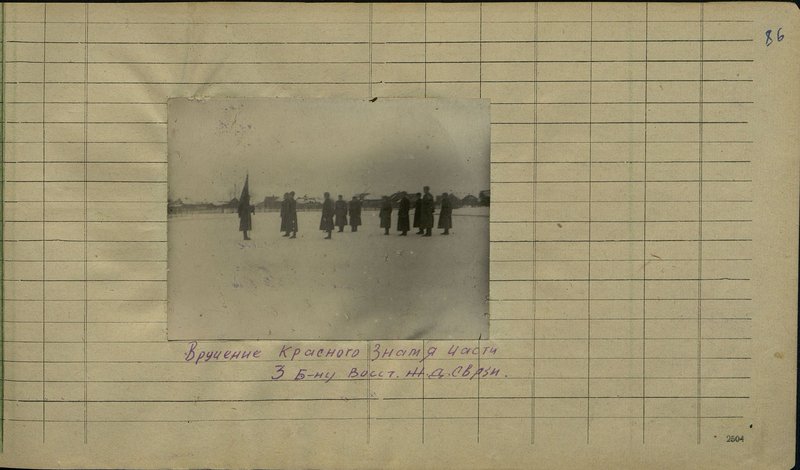 86
Вручение Красного Знамя части
3 Б-ну Восст. Ж.Д. Связи.
2504